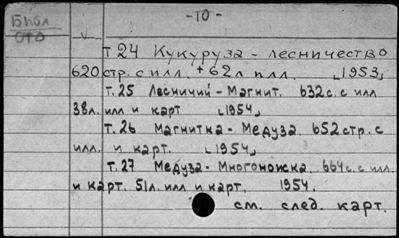 -10-
Библ.
ОТО
т 24 Кукуруза - лесничество
620 стр. с илл. + 62 л илл. [1953]
т. 25 Лесничий - Магнит. 632 с. с илл
38 л. илл и карт [1954]
т. 26 Магнитка - Медуза. 652 стр. с
илл. и карт. [1954]
т. 27 Медуза - Многоножка. 664 с. с илл.
и карт. 51 л. илл и карт. 1954.
см. след. карт.